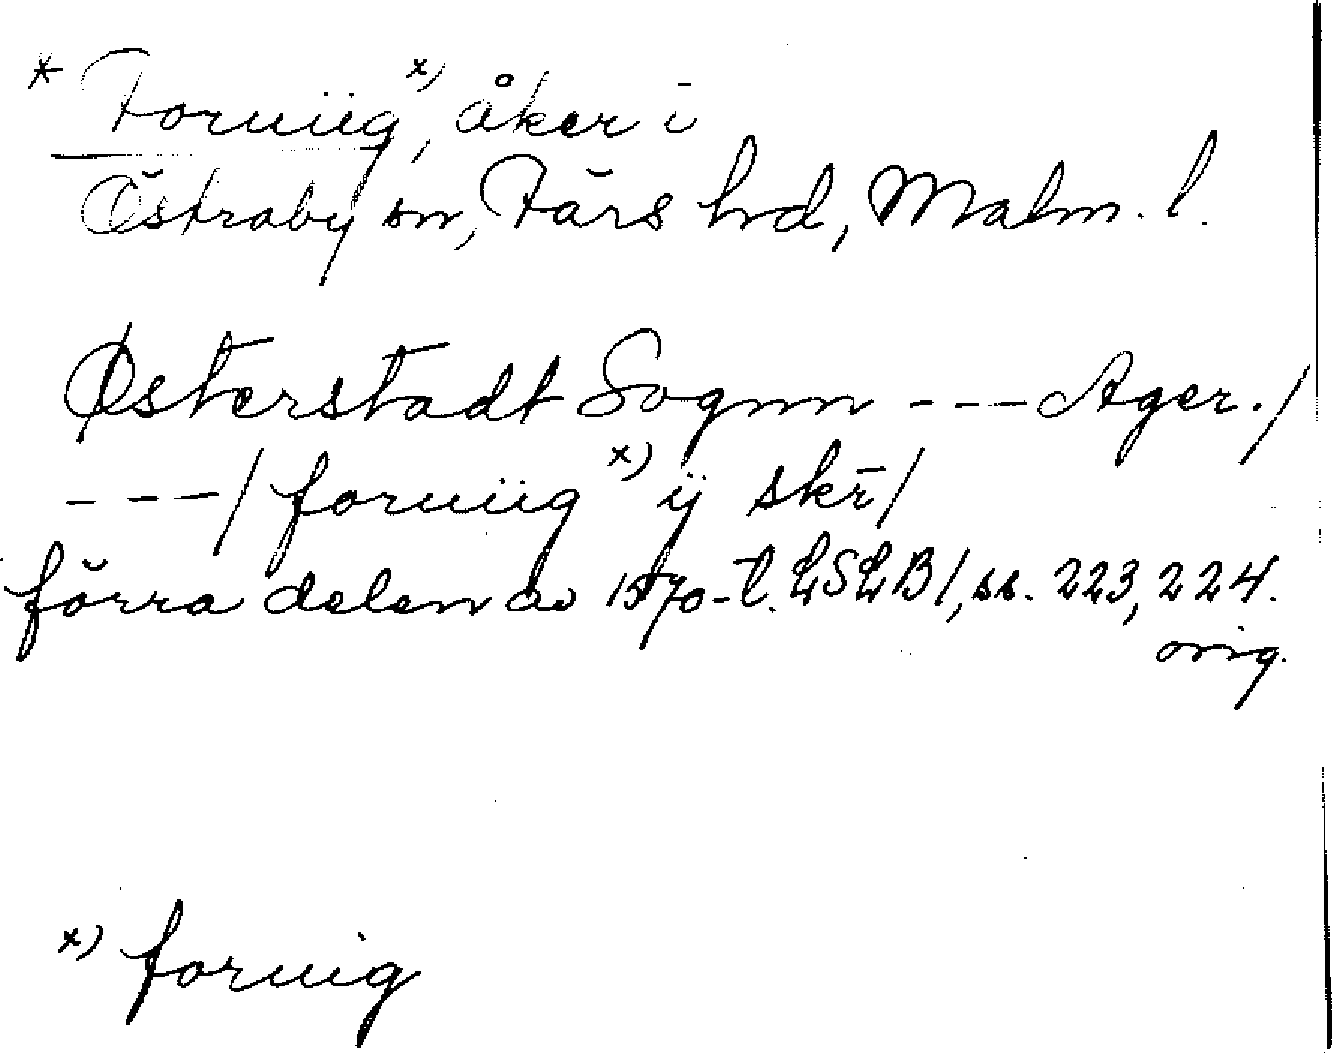 * Foruiig x), åker i
Östraby sn, Färs hd, Malm. l.
Østerstadt Sognn --- Ager./
---/ foruiig x) ij skr̄/
förra delen av 1570-t. LSLB1, ss. 223, 224.
orig.
x) foruig